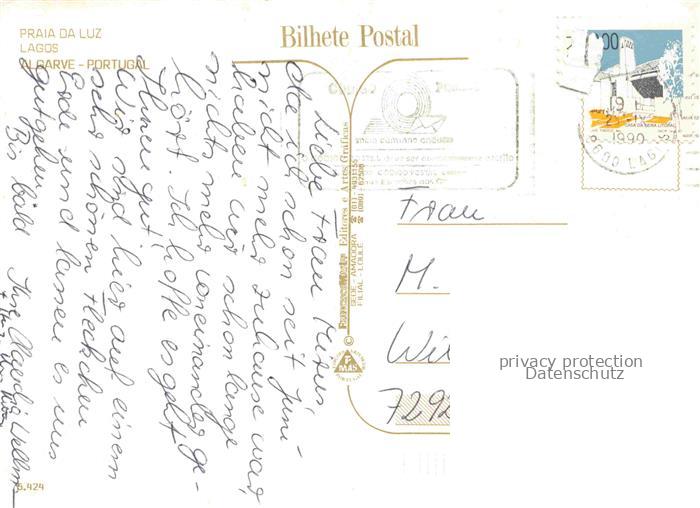 PRAIA DA LUZ
LAGOS
ALGARVE - PORTUGAL
Bilhete Postal
Liebe Frau
da ich schon seit Juni
nicht mehr zuhause war,
haben wir schon lange
nichts mehr voneinander ge-
hört. Ich hoffe es geht
Ihnen gut.
Wir sind hier auf einem
sehr schönen Fleckchen
Erde und lassen es uns
gutgehen.
Bis bald Ihre Claudia
Editores e Artes Gráficas
SEDE - AMADORA
FILIAL - LOULÉ
Frau
M.
Wil
7292
privacy protection
Datenschutz
1990
8600 LAG
CÓDIGO POSTAL
S.424